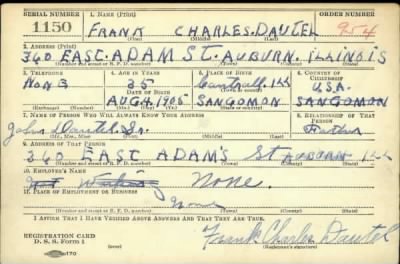 SERIAL NUMBER 1. NAME (Print) ORDER NUMBER
1150 FRANK CHARLES DAUTEL 954
(First) (Middle) (Last)
2. ADDRESS (Print)
360 EAST. ADAM ST. AUBURN. ILLINOIS
(Number and street or R. F. D. number) (Town) (County) (State)
3. TELEPHONE 4. AGE IN YEARS 5. PLACE OF BIRTH 6. COUNTRY OF CITIZENSHIP
NONE 35 Cantrall Ill U.S.A.
DATE OF BIRTH
AUG. 4, 1905 SANGOMON SANGOMON
(Exchange) (Number) (Mo.) (Day) (Yr.) (State or country)
7. NAME OF PERSON WHO WILL ALWAYS KNOW YOUR ADDRESS 8. RELATIONSHIP OF THAT PERSON
John Dautel Sr. Father
(Mr., Mrs., Miss) (First) (Middle) (Last)
9. ADDRESS OF THAT PERSON
360 EAST ADAM'S St AUBURN Ill
(Number and street or R. F. D. number) (Town) (County) (State)
10. EMPLOYER'S NAME
Not Working None.
11. PLACE OF EMPLOYMENT OR BUSINESS
None
(Number and street or R. F. D. number) (Town) (County) (State)
I AFFIRM THAT I HAVE VERIFIED ABOVE ANSWERS AND THAT THEY ARE TRUE.
REGISTRATION CARD
D. S. S. Form 1 Frank Charles Dautel
(Registrant's signature)